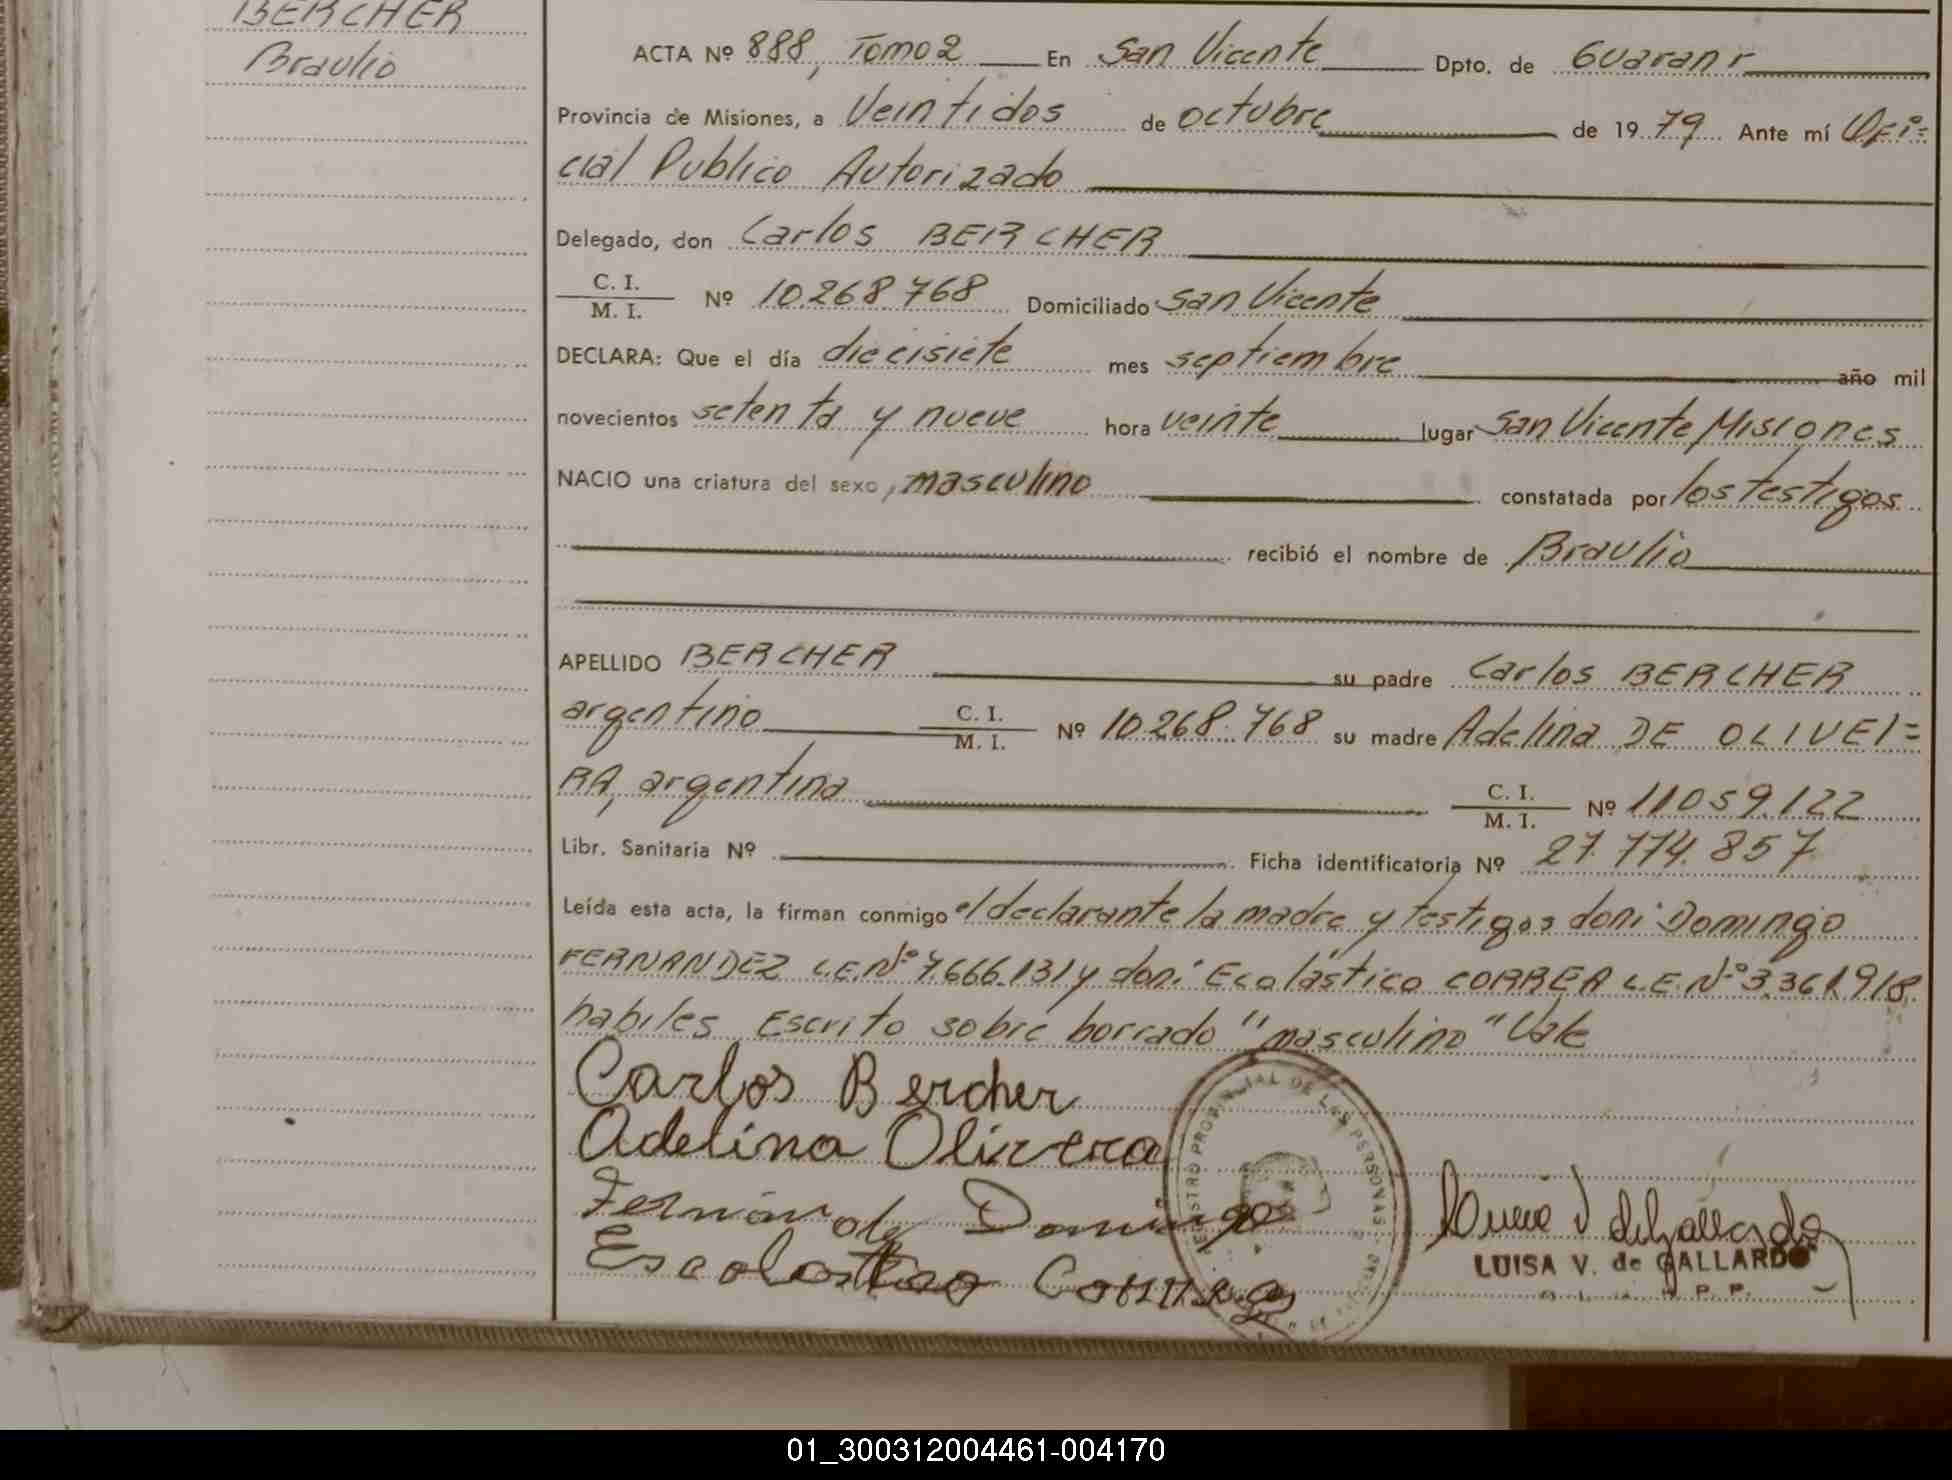 BERCHER
Braulio
ACTA Nº 888, Tomo 2 En San Vicente Dpto. de Guaraní
Provincia de Misiones, a Veintidos de octubre de 1979 Ante mí Ofi=
cial Publico Autorizado
Delegado, don Carlos BERCHER
C. I.
M. I. Nº 10.268.768 Domiciliado San Vicente
DECLARA: Que el día diecisiete mes septiembre año mil
novecientos setenta y nueve hora veinte lugar San Vicente Misiones
NACIO una criatura del sexo, masculino constatada por los testigos
recibió el nombre de Braulio
APELLIDO BERCHER su padre Carlos BERCHER
argentino C. I.
M. I. Nº 10.268.768 su madre Adelina DE OLIVEI=
RA, argentina C. I.
M. I. Nº 11.059.122
Libr. Sanitaria Nº Ficha identificatoria Nº 27.774.857
Leída esta acta, la firman conmigo el declarante la madre y testigos don: Domingo
FERNANDEZ L.E.Nº 7.666.131 y don: Ecolástico CORRER L.E. Nº 3.361.918
habiles Escrito sobre borrado "masculino" Vale
Carlos Bercher
Adelina Olivera
Domingo
Escolastico
REGISTRO PROVINCIAL DE LAS PERSONAS
LUISA V. de GALLARDO
P. P.
01_300312004461-004170